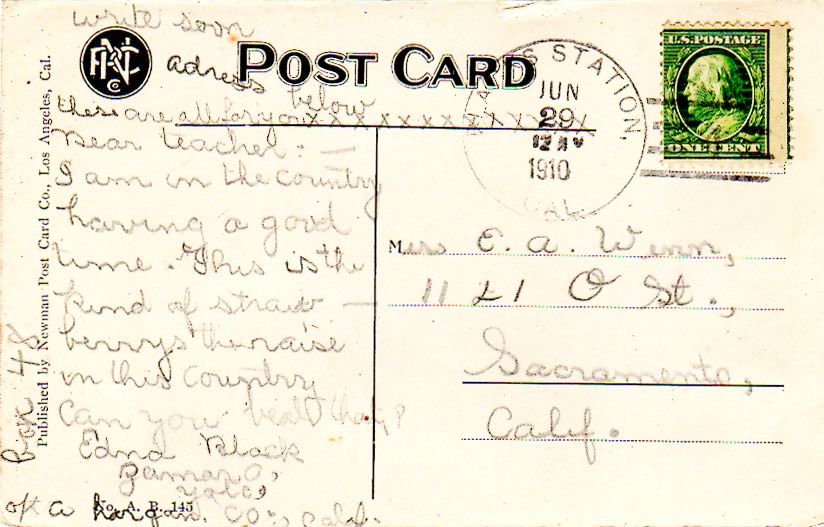 write soon
adress below
POST CARD
these are all for you x x x x x x x x x x x x x
Dear teacher: —
I am in the country
having a good
time. This is the
kind of straw —
berrys the raise
in this country
Can you beat that?
Edna Black
Zamaro,
Yolo,
Co., Cali.
Box 48
No. A. B. 145
Published by Newman Post Card Co., Los Angeles, Cal.
STATION,
JUN
29
1910
CAL.
U.S. POSTAGE
ONE CENT
Mrs E. A. Winn,
1121 O St.,
Sacramento,
Calif.